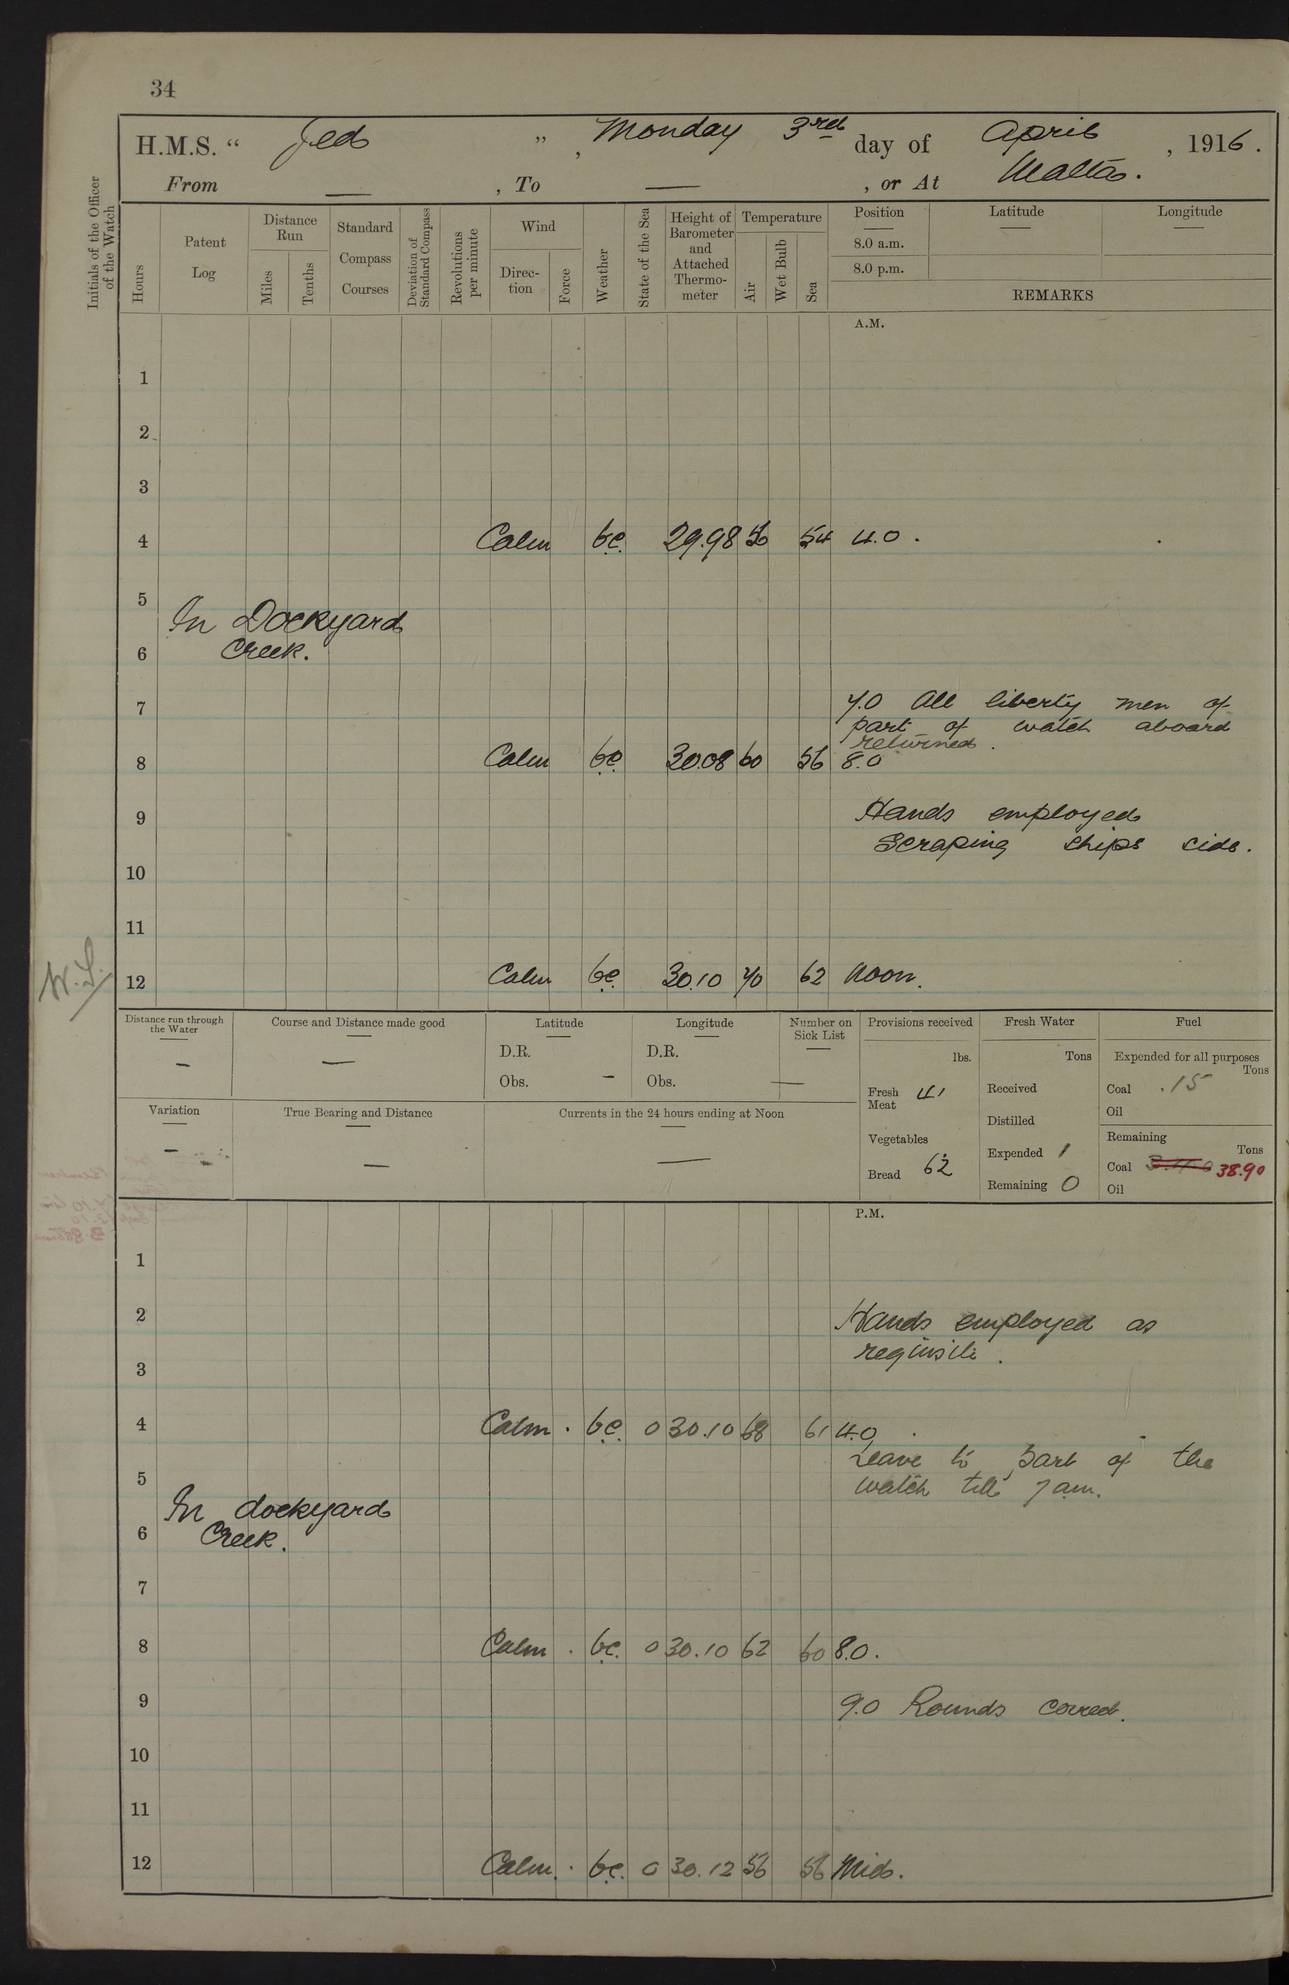 34
H.M.S. " Jed ", Monday 3rd day of April, 1916.
From — , To — , or At Malta.
Initials of the Officer of the Watch
Hours
Patent Log
Distance Run
Miles
Tenths
Standard Compass Courses
Deviation of Standard Compass
Revolutions per minute
Wind
Direction
Force
Weather
State of the Sea
Height of Barometer and Attached Thermometer
Temperature
Air
Wet Bulb
Sea
Position
Latitude
Longitude
8.0 a.m.
8.0 p.m.
REMARKS
A.M.
1
2
3
4 Calm b.c. 29.98 56 54 4.0.
5
In Dockyard
6 Creek.
7 7.0 All liberty men of
part of watch aboard
returned.
8 Calm b.c. 30.08 60 56 8.0
9 Hands employed
scraping ships side.
10
11
W.S.
12 Calm b.c. 30.10 70 62 Noon.
Distance run through the Water —
Course and Distance made good —
Latitude
D.R.
Obs. —
Longitude
D.R.
Obs.
Number on Sick List —
Provisions received
lbs.
Fresh Meat 41
Vegetables
Bread 62
Fresh Water
Tons
Received
Distilled
Expended 1
Remaining 0
Fuel
Expended for all purposes
Tons
Coal .15
Oil
Remaining
Tons
Coal 38.90
Oil
Variation —
True Bearing and Distance —
Currents in the 24 hours ending at Noon —
P.M.
1
2 Hands employed as
requisite.
3
4 Calm . b.c. 0 30.10 68 61 4.0
Leave to part of the
watch till 7 am.
5
In dockyard
6 Creek.
7
8 Calm . b.c. 0 30.10 62 60 8.0.
9 9.0 Rounds correct.
10
11
12 Calm . b.c. 0 30.12 56 56 Mid.